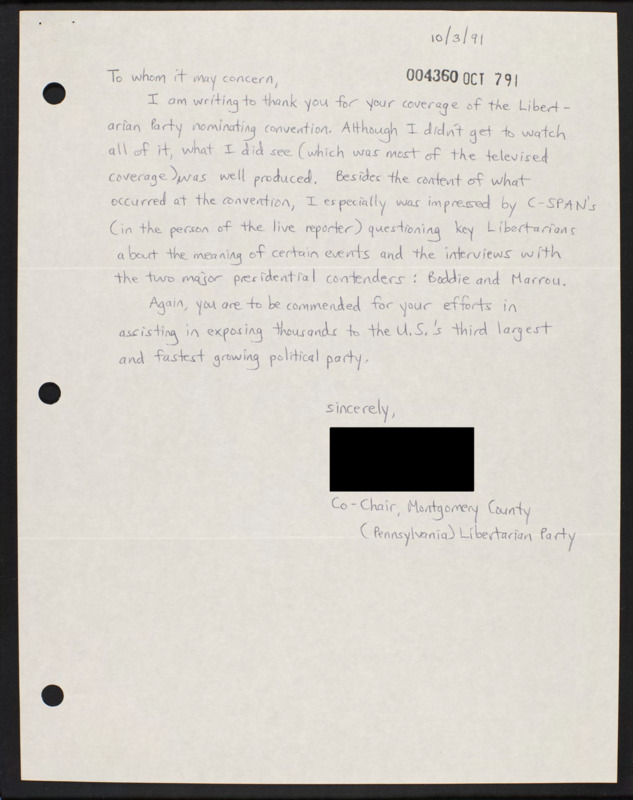 10/3/91
To whom it may concern,
004360 OCT 791
I am writing to thank you for your coverage of the Libert-
arian Party nominating convention. Although I didn't get to watch
all of it, what I did see (which was most of the televised
coverage) was well produced. Besides the content of what
occurred at the convention, I especially was impressed by C-SPAN's
(in the person of the live reporter) questioning key Libertarians
about the meaning of certain events and the interviews with
the two major presidential contenders: Boddie and Marrou.
Again, you are to be commended for your efforts in
assisting in exposing thousands to the U.S.'s third largest
and fastest growing political party.
sincerely,
Co-Chair, Montgomery County
(Pennsylvania) Libertarian Party